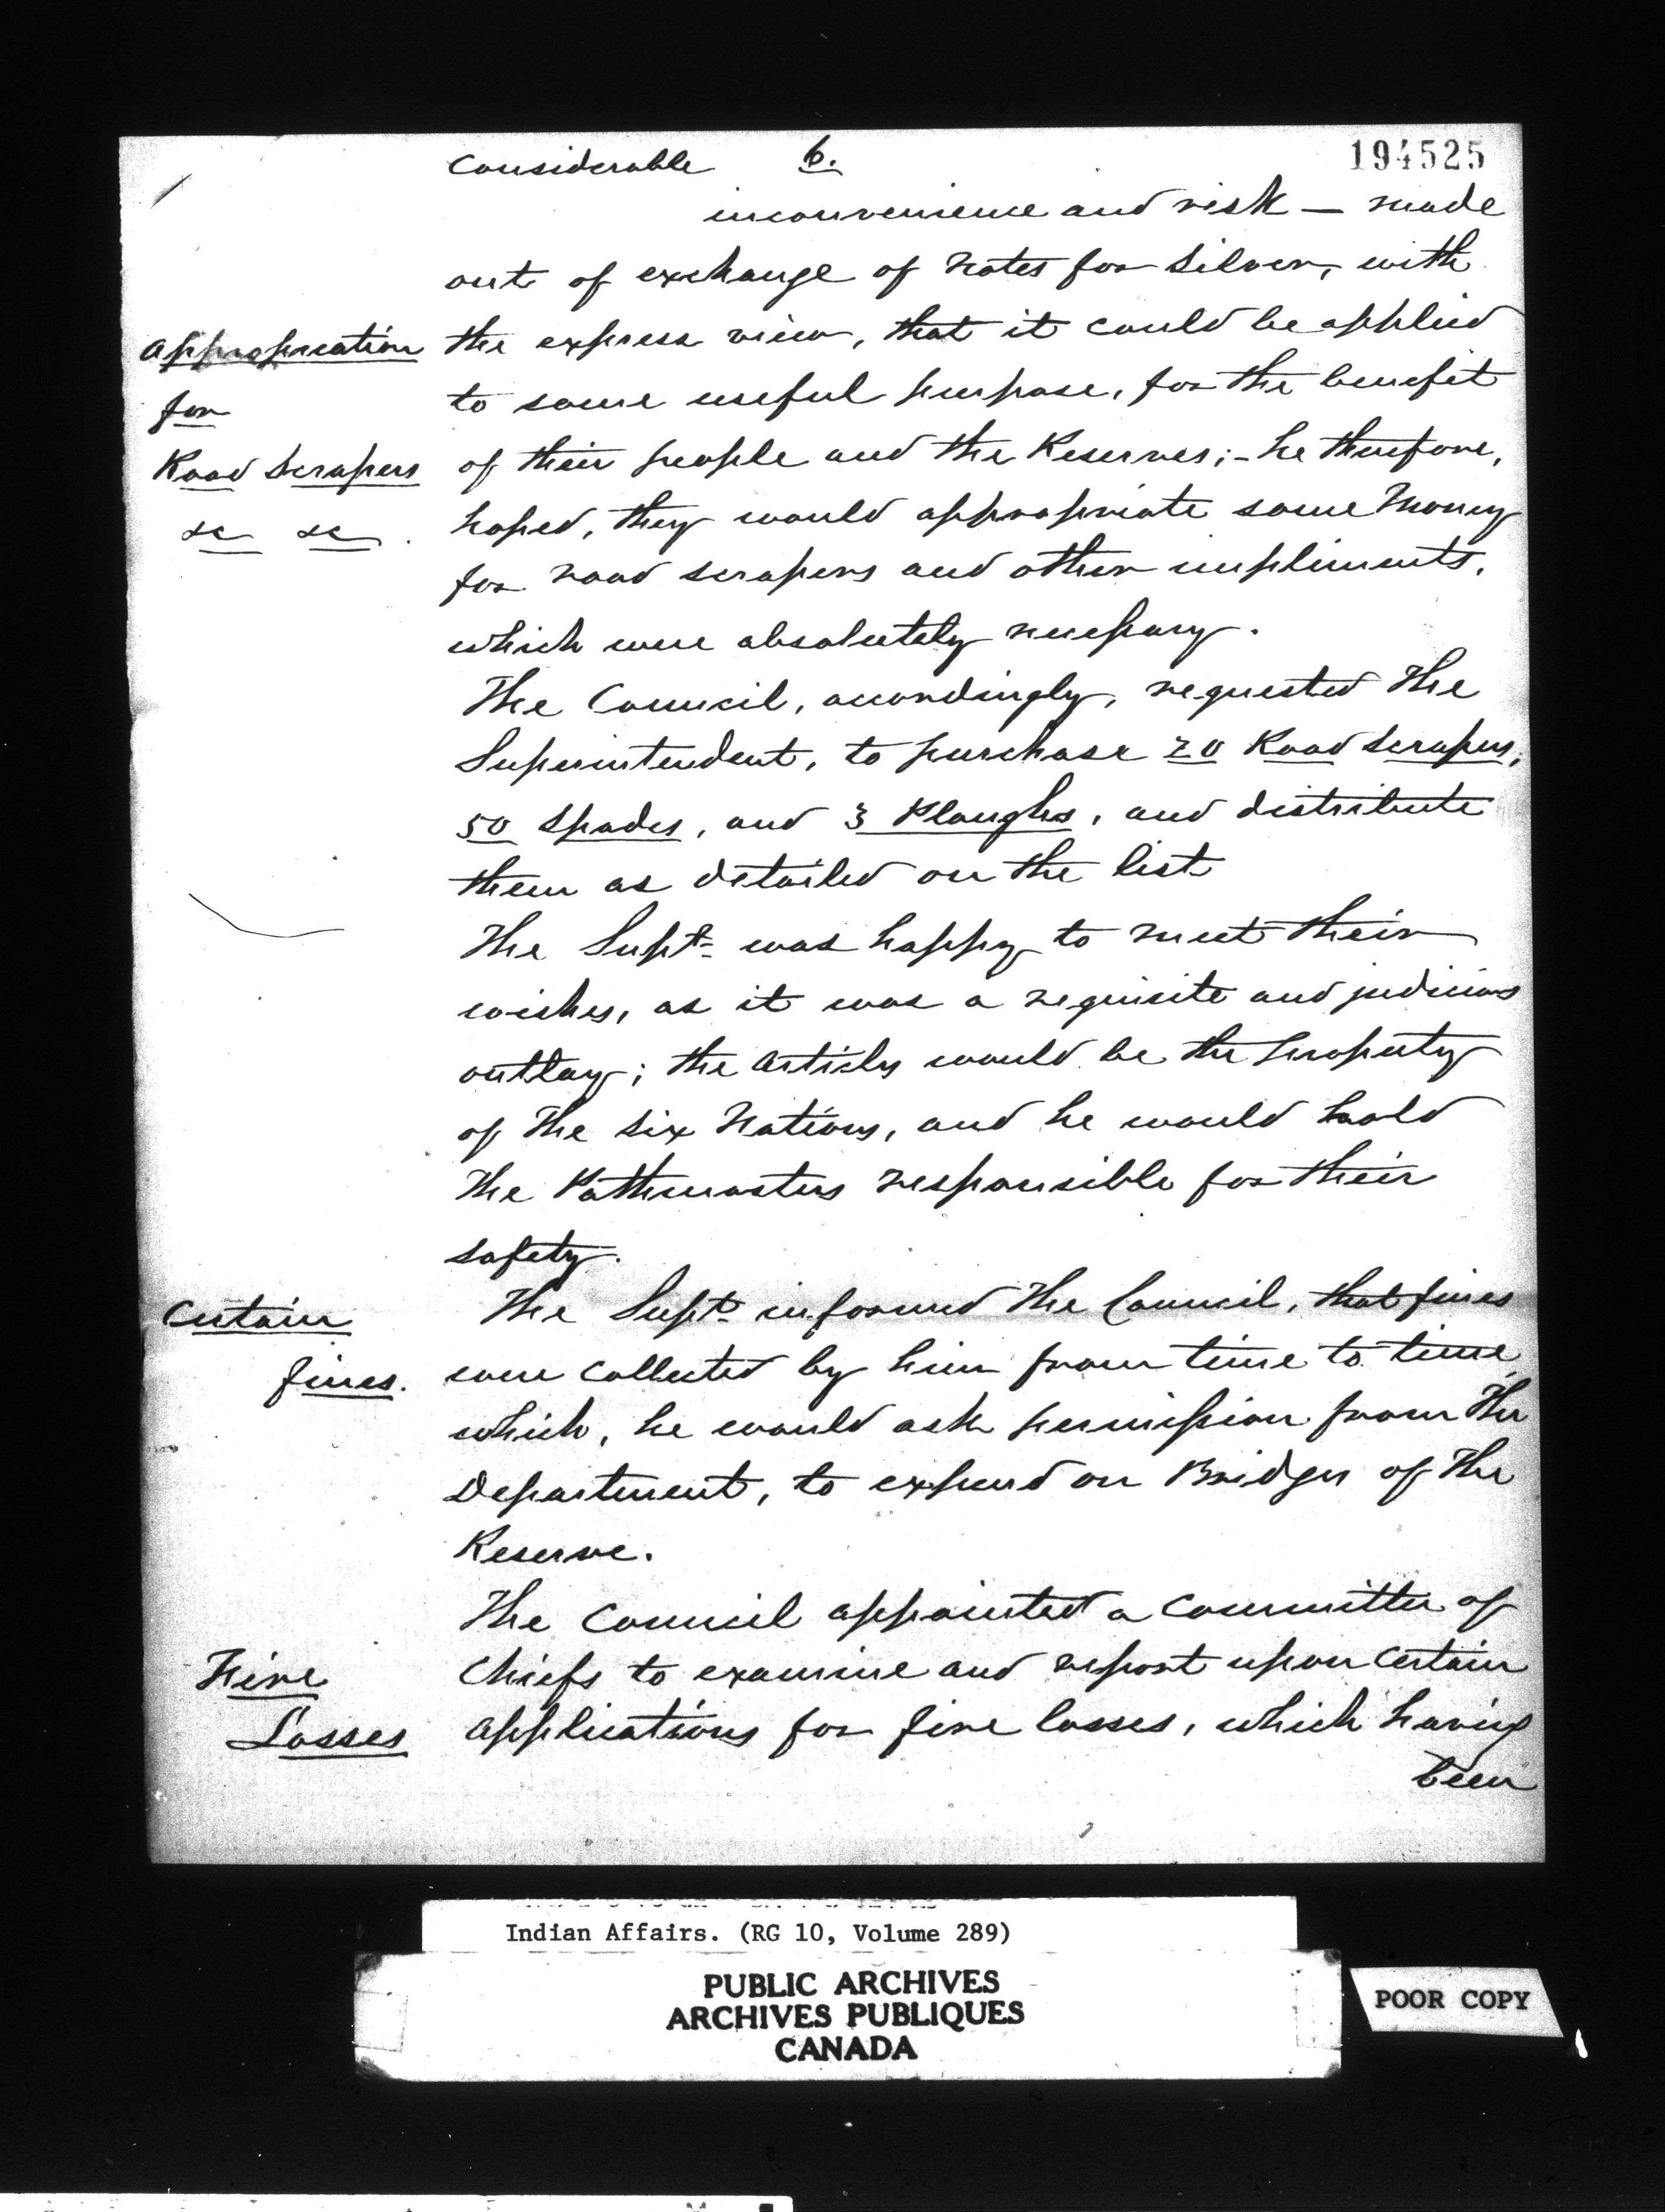 considerable 6. 194525
inconvenience and risk — made
out of exchange of Notes for Silver, with
Appropriation the express view, that it could be applied
for to some useful purpose, for the benefit
Road Scrapers of their people and the Reserves;- he therefore,
&c &c. hoped, they would appropriate some Money
for road scrapers and other impliments,
which were absolutely necessary.
The Council, accordingly, requested The
Superintendent, to purchase 20 Road Scrapers,
50 Spades, and 3 Ploughs, and distribute
them as detailed on the list
The Supt. was happy to meet their
wishes, as it was a requisite and judicious
outlay; the articles would be the property
of The Six Nations, and he would hold
The Pathmasters responsible for their
safety.
Certain The Supt. informed The Council, that fines
fines. were collected by him from time to time,
which, he would ask permission from The
Department, to expend on Bridges of The
Reserve.
The Council appointed a Committee of
Fire Chiefs to examine and report upon certain
Losses applications for fire losses, which having
been
Indian Affairs. (RG 10, Volume 289)
PUBLIC ARCHIVES
ARCHIVES PUBLIQUES
CANADA
POOR COPY